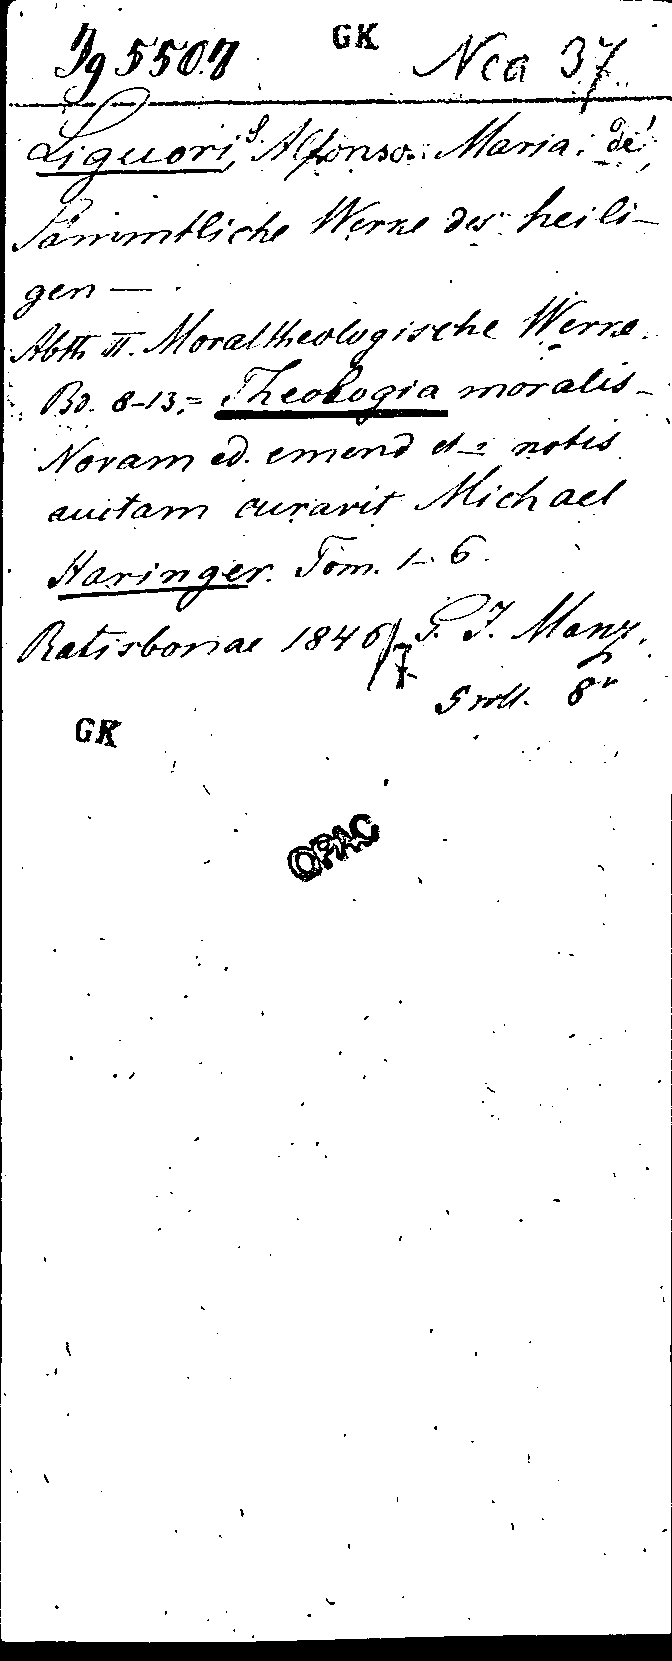 Jg 5507 GK Nca 37
Liguori, S. Alfonso Maria de',
Sämmtliche Werke des heili-
gen —
Abth II. Moraltheologische Werke.
Bd. 8-13 = Theologia moralis
Novam ed. emend et notis
auctam curavit Michael
Haringer. Tom. 1-6.
Ratisbonae 1846/7 G. J. Manz.
5 voll. 8°
GK
OPAC